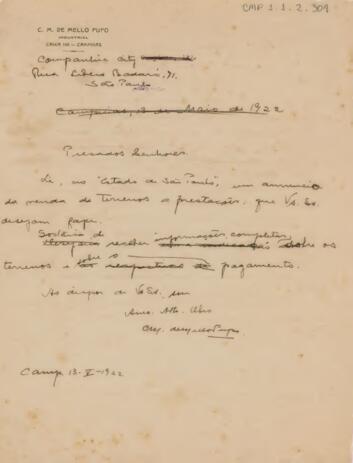 CMP 1.1.2.309
C. M. DE MELLO PUPO
INDUSTRIAL
CAMPINAS
Companhia City
Rua Libero Badaró, 91.
São Paulo
Campinas, 13 de Maio de 1922
Presados Senhores.
Li, no "Estado de São Paulo", um annuncio
da venda de terrenos a prestações, que Vs. Ss.
desejam fazer.
Gostaria de
receber informações completas sobre os
sobre o
terrenos e as respectivas pagamento.
Ao dispor de Vs. Ss., sou
Amo. Atto. Obro.
Camp. 13-V-1922